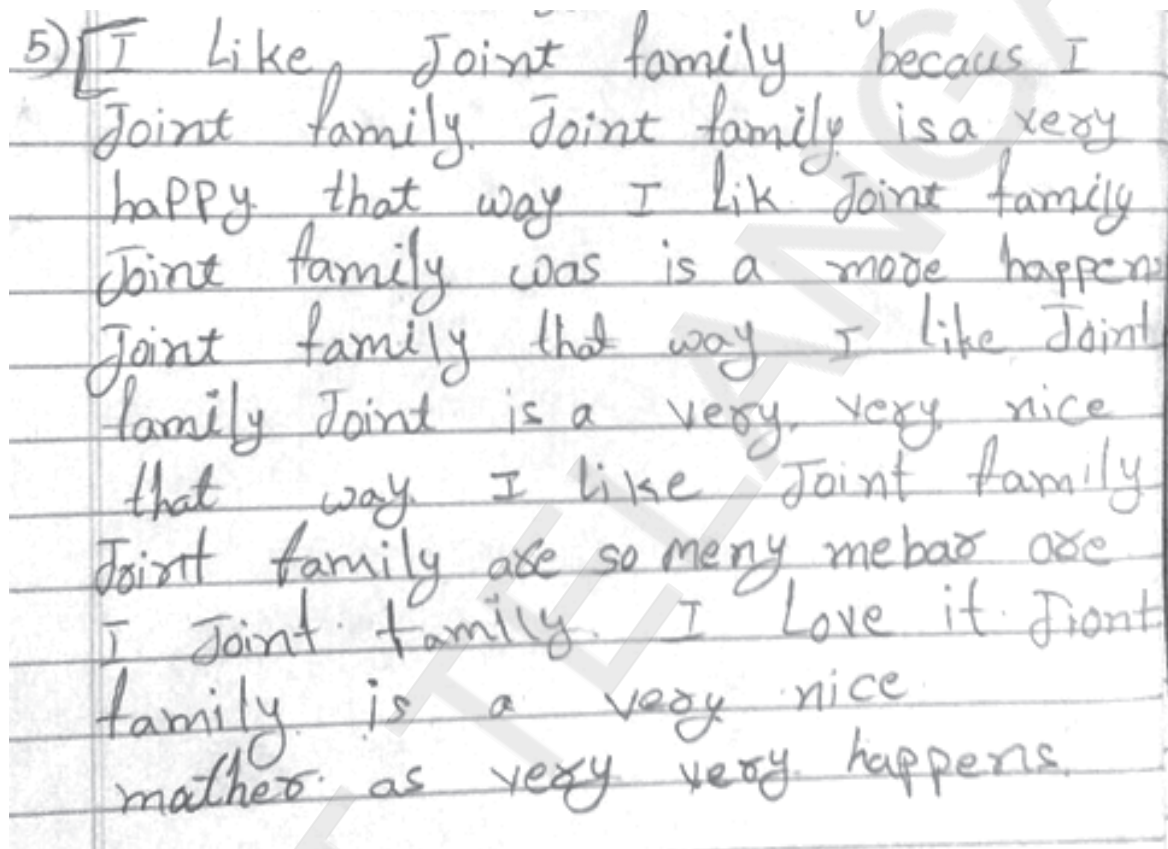 5) I Like Joint family becaus I
Joint family. Joint family is a very
happy that way I lik Joint family
Joint family was is a more happens
Joint family that way I like Joint
family Joint is a very, very nice
that way I like Joint family
Joint family are so meny mebar are
I Joint family. I Love it Jiont
family is a very nice
mather as very very happens.